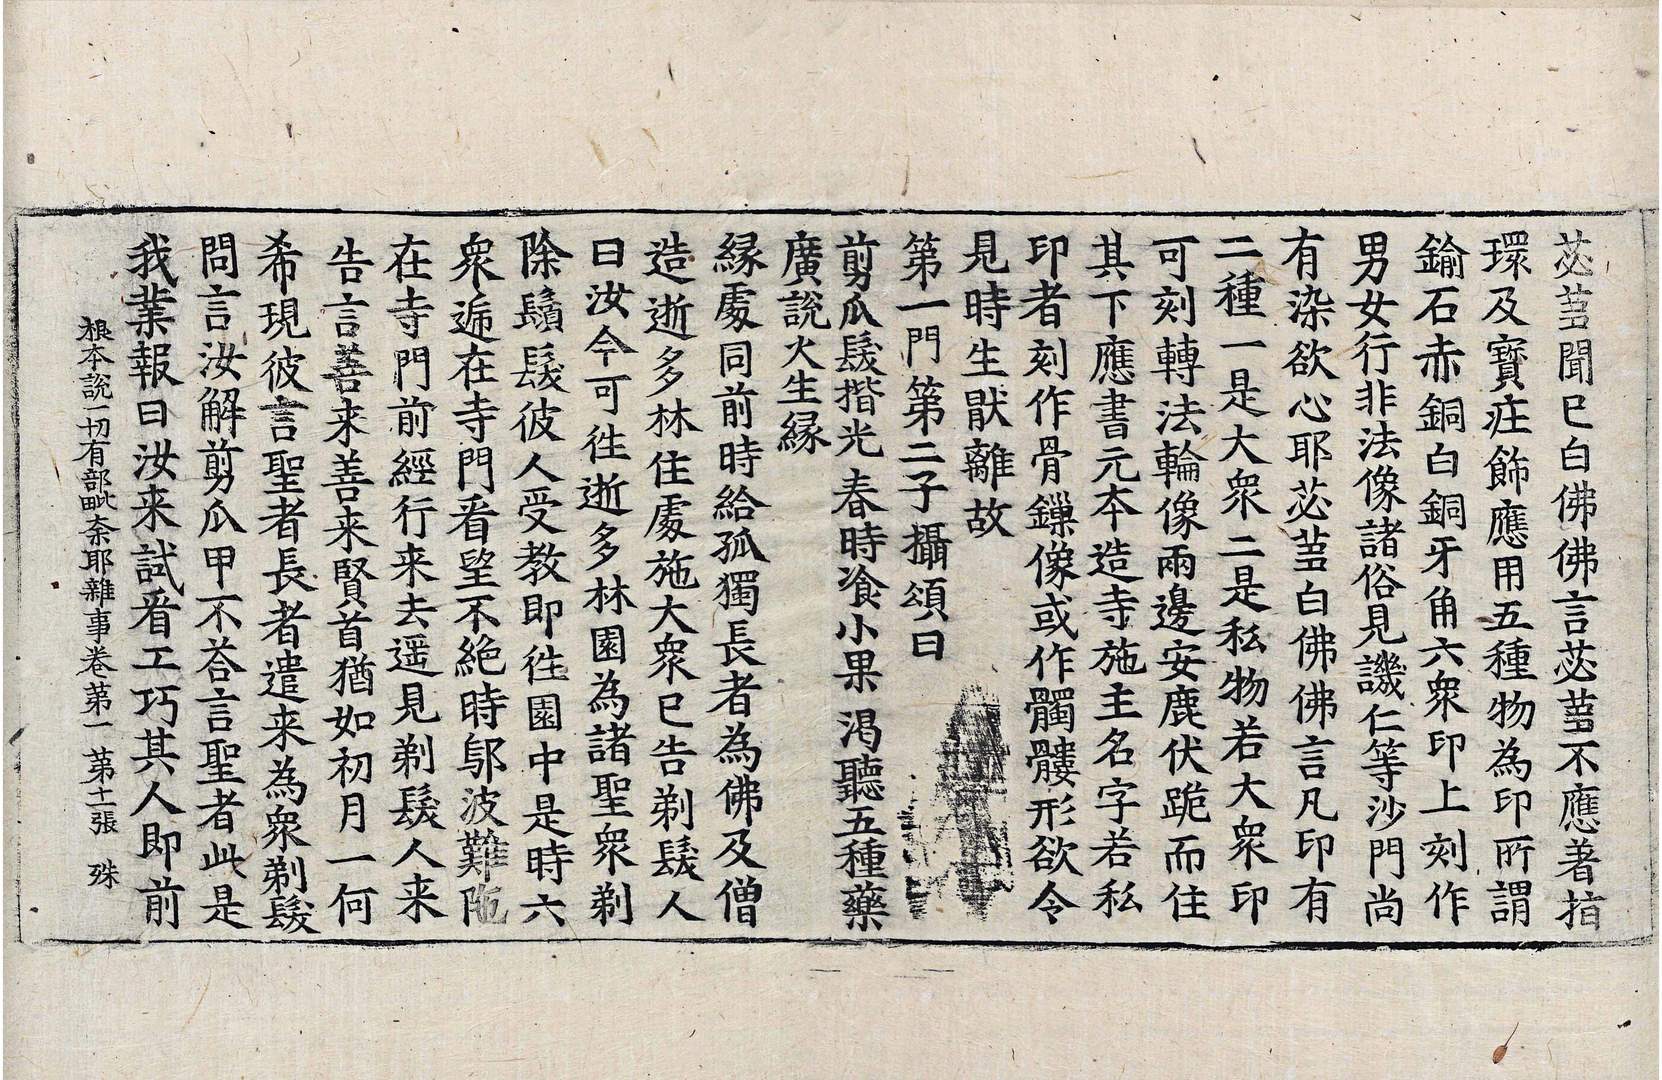 苾芻聞已白佛佛言苾芻不應著指
環及寶庄飾應用五種物為印所謂
鍮石赤銅白銅牙角六衆印上刻作
男女行非法像諸俗見譏仁等沙門尚
有染欲心耶苾芻白佛佛言凡印有
二種一是大衆二是私物若大衆印
可刻轉法輪像兩邊安鹿伏跪而住
其下應書元本造寺施主名字若私
印者刻作骨鏁像或作髑髏形欲令
見時生猒離故
第一門第二子攝頌曰
剪爪髮揩光 春時飡小果 渴聽五種藥
廣說火生縁
縁處同前時給孤獨長者為佛及僧
造逝多林住處施大衆已告剃髮人
曰汝今可徃逝多林園為諸聖衆剃
除鬚髮彼人受教即徃園中是時六
衆遍在寺門看望不絶時鄔波難陁
在寺門前經行来去遥見剃髮人来
告言善来善来賢首猶如初月一何
希現彼言聖者長者遣来為衆剃髮
問言汝解剪爪甲不荅言聖者此是
我業報曰汝来試看工巧其人即前
根本說一切有部毗奈耶雜事卷第一 第十一張 殊